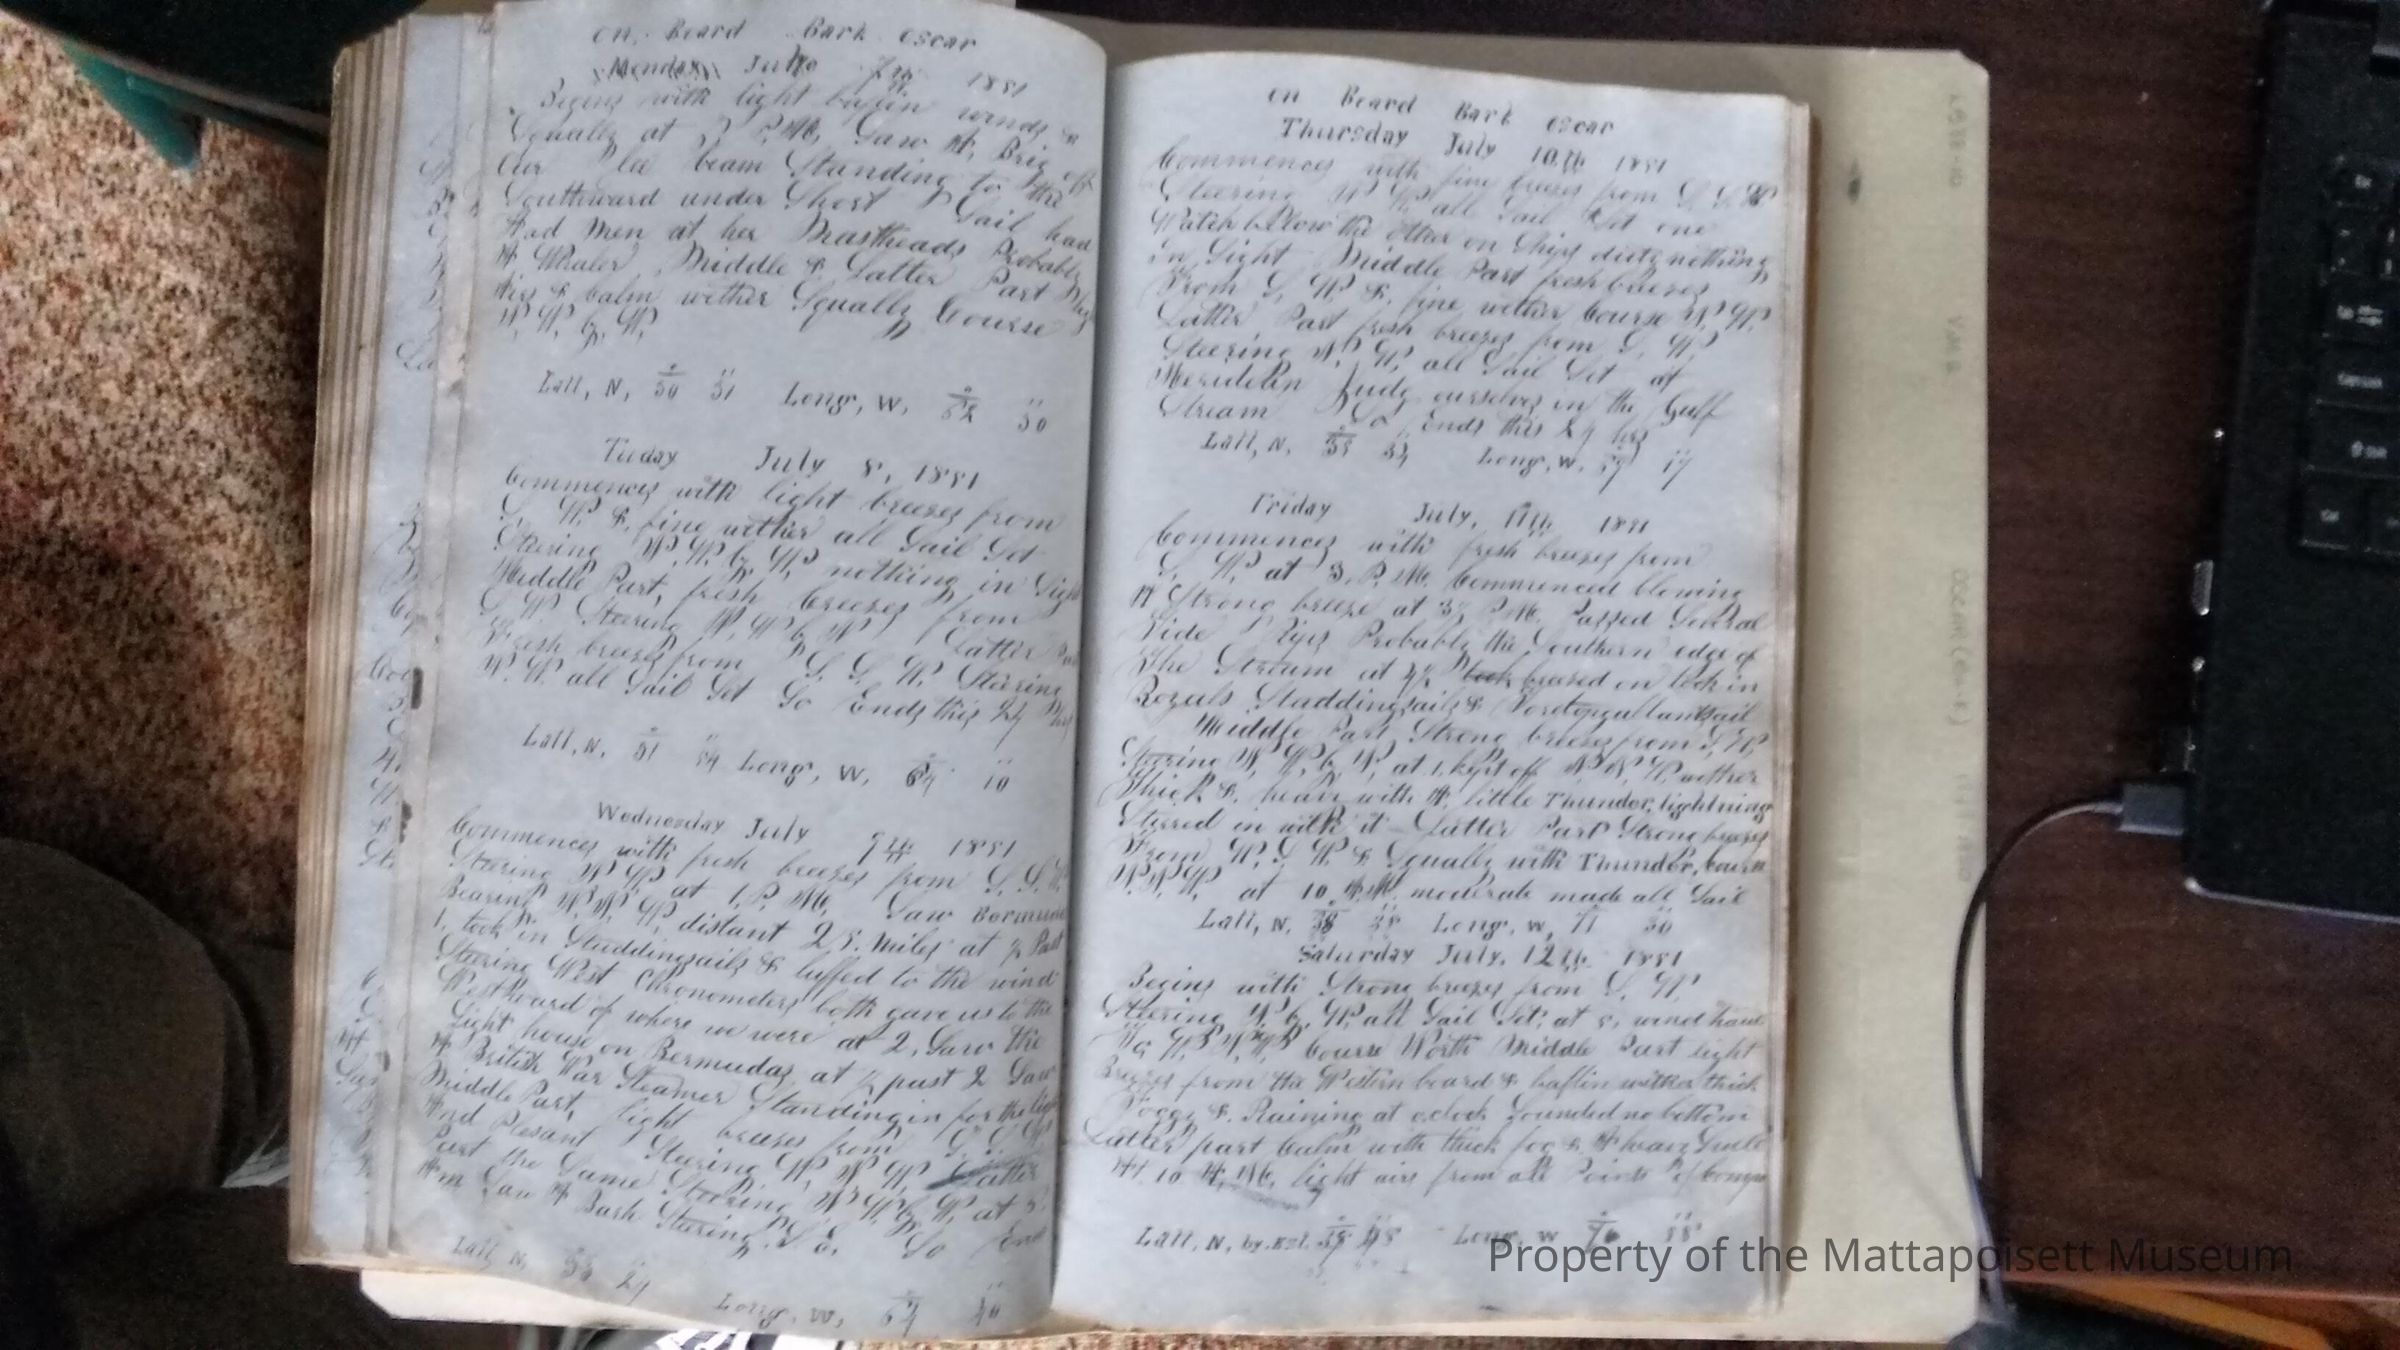 on Board Bark Oscar
Monday July 7th 1851
Begins with light baflin winds &
Squally at P.M. Saw A, Brig of
Our lee beam Standing to the
Southward under Short Sail had
And Men at her Mastheads Probably
A Whaler Middle & Latter Part
Airs & Calm wether Squally Course
N. W. by W.
Latt, N, 30 51 Long, W, 62 50
Tuday July 8, 1851
Commences with light breezes from
S. W. & fine wether all Sail Set
Steering N. W. by W. nothing in Sight
Middle Part, fresh breezes from
S. W. Steering N. W. by N. Latter
Fresh breezes from S. S. W. Steering
N. W. all Sail Set So Ends this 24 hrs
Latt, N. 31 54 Long, W, 64 10
Wednesday July 9th 1851
Commences with fresh breezes from S. S. W.
Steering N W at 1, P. M. Saw Bermuda
Bearing N. N. W, distant 25 Miles at ½ Past
1, took in Studdingsails & luffed to the wind
Steering West Chronometers both gave us to the
Westward of where we were at 2, Saw the
Light house on Bermudas at ½ past 2 Saw
A British War Steamer Standing in for the light
Middle Part, light breezes from S. S. W
And Plesant Steering W, N, W, Latter
Part the Same Steering N. W. by W. at 5
Am Saw A Bark Steering S. E. So End
Latt N, 33 24 Long. W, 64 40
on Board Bark Oscar
Thursday July 10th 1851
Commences with fine breezes from S. S. W
Steering N. W. all Sail Set one
Watch below the other on Ships duty nothing
in Sight Middle Part fresh breezes
From S, W & fine wether Course N. W.
Latter Part fresh breezes from S, W,
Steering N. W, all Sail Set at
Meridein Judg ourselves in the Gulf
Stream So Ends this 24 hrs
Latt, N. 35 Long, W,
Friday July, 11th 1851
Commences with fresh breezes from
S. W. at 3, P. M. Commenced blowing
A Strong breeze at 3½ P.M. Passed Sevral
Tide Rips Probably the Southern edge of
The Stream at 4½ took braced on took in
Royals Studdingsails & Foretopgallantsail
Middle Part Strong breezes from S, W
Steering N. W, by N, at 1, kept off N. N. W, wether
Thick & heavy with A, little Thunder, lightning
Stirred in with it - Latter Part Strong breezes
From W. S. W. & Squally with Thunder, Course
N. N. W, at 10, A.M, moderate made all Sail
Latt, N. 38 Long. W, 71 50
Saturday July, 12th 1851
Begins with Strong breezes from S. W
Steering N by W, all Sail Set; at 5, wind haul
To W. N. W. Course North Middle Part light
Breezes from the Western board & baflin wether thick
Foggy & Raining at oclock Sounded no bottom
Latter part Calm with thick fog & A heavy Swell
At 10 A, M, light airs from all Points of Compas
Latt, N, by. Est. Long, W
Property of the Mattapoisett Museum